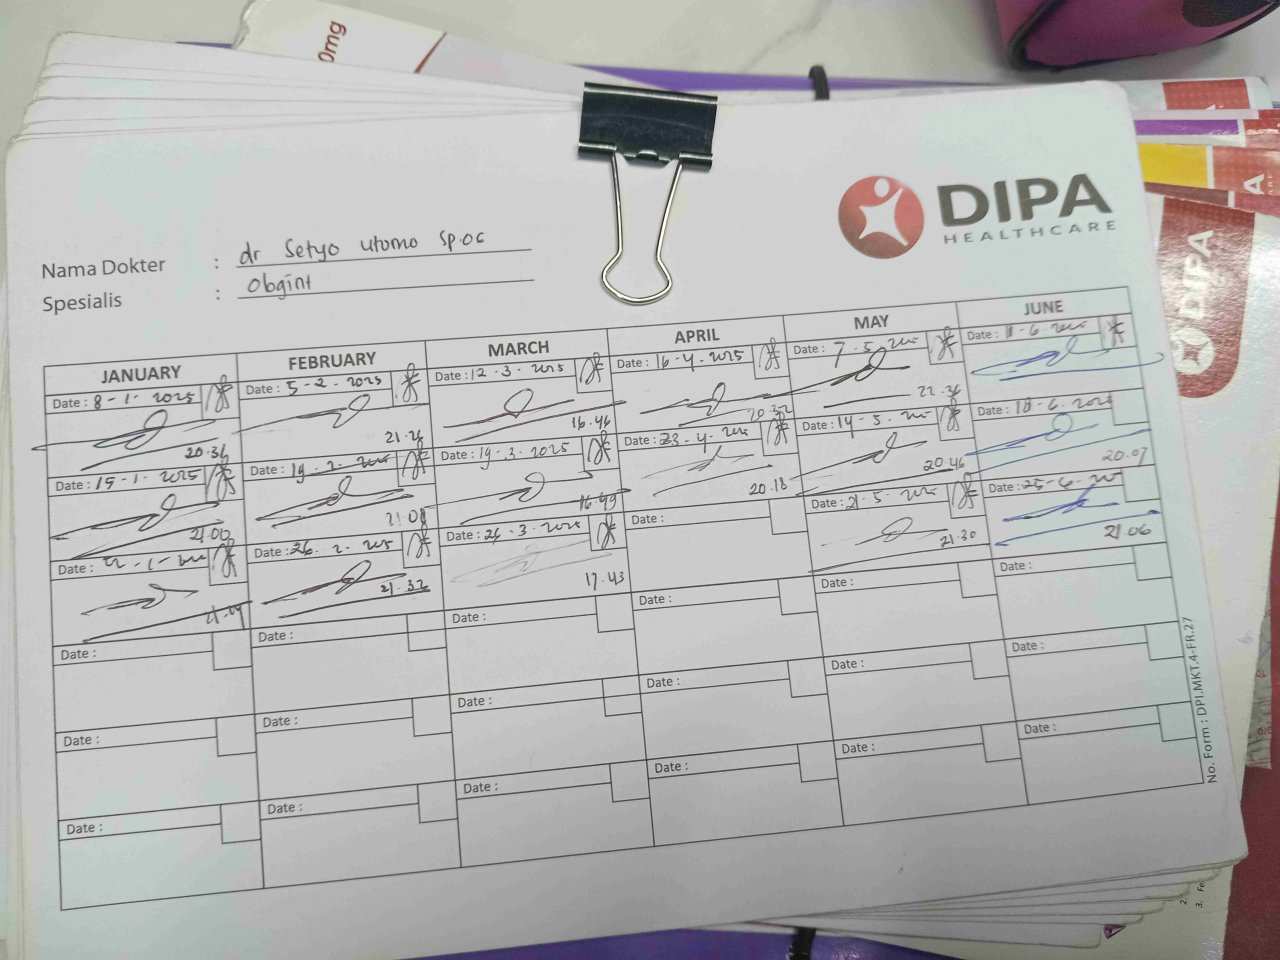 0mg
DIPA
HEALTHCARE
Nama Dokter : dr Setyo utomo Sp.OG
Spesialis : Obgint
JANUARY FEBRUARY MARCH APRIL MAY JUNE
Date : 8-1-2025 Date : 5-2-2025 Date : 12-3-2025 Date : 16-4-2025 Date : 7-5-2025 Date : 11-6-2025
20.36 21.26 16.46 20.22 22.36
Date : 15-1-2025 Date : 19-2-2025 Date : 19-3-2025 Date : 23-4-2025 Date : 14-5-2025 Date : 18-6-2025
21.00 21.08 16.49 20.18 20.46 20.07
Date : 22-1-2025 Date : 26-2-2025 Date : 26-3-2025 Date : Date : 21-5-2025 Date : 25-6-2025
21.32 17.43 21.30 21.06
Date : Date : Date : Date : Date : Date :
Date : Date : Date : Date : Date : Date :
Date : Date : Date : Date : Date : Date :
No. Form : DPI.MKT.4-FR.27
DIPA